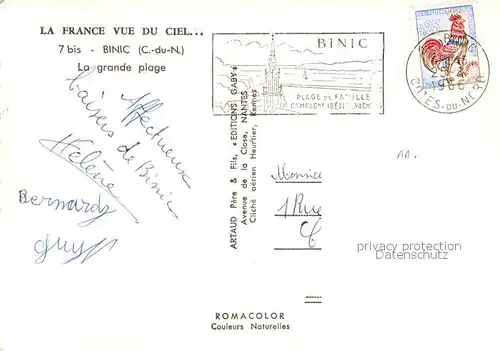 LA FRANCE VUE DU CIEL...
7 bis - BINIC (C.-du-N.)
La grande plage
Affectueux
baisers de Binic
Hélène
Bernard
BINIC
PLAGE DE FAMILLE
0,25
BINIC
1966
COTES-DU-NORD
ARTAUD Père & Fils, «EDITIONS GABY»
Avenue de la Close, NANTES
Cliché aérien Heurtier, Rennes
11.
1 Rue
privacy protection
osenau.com
ROMACOLOR
Couleurs Naturelles